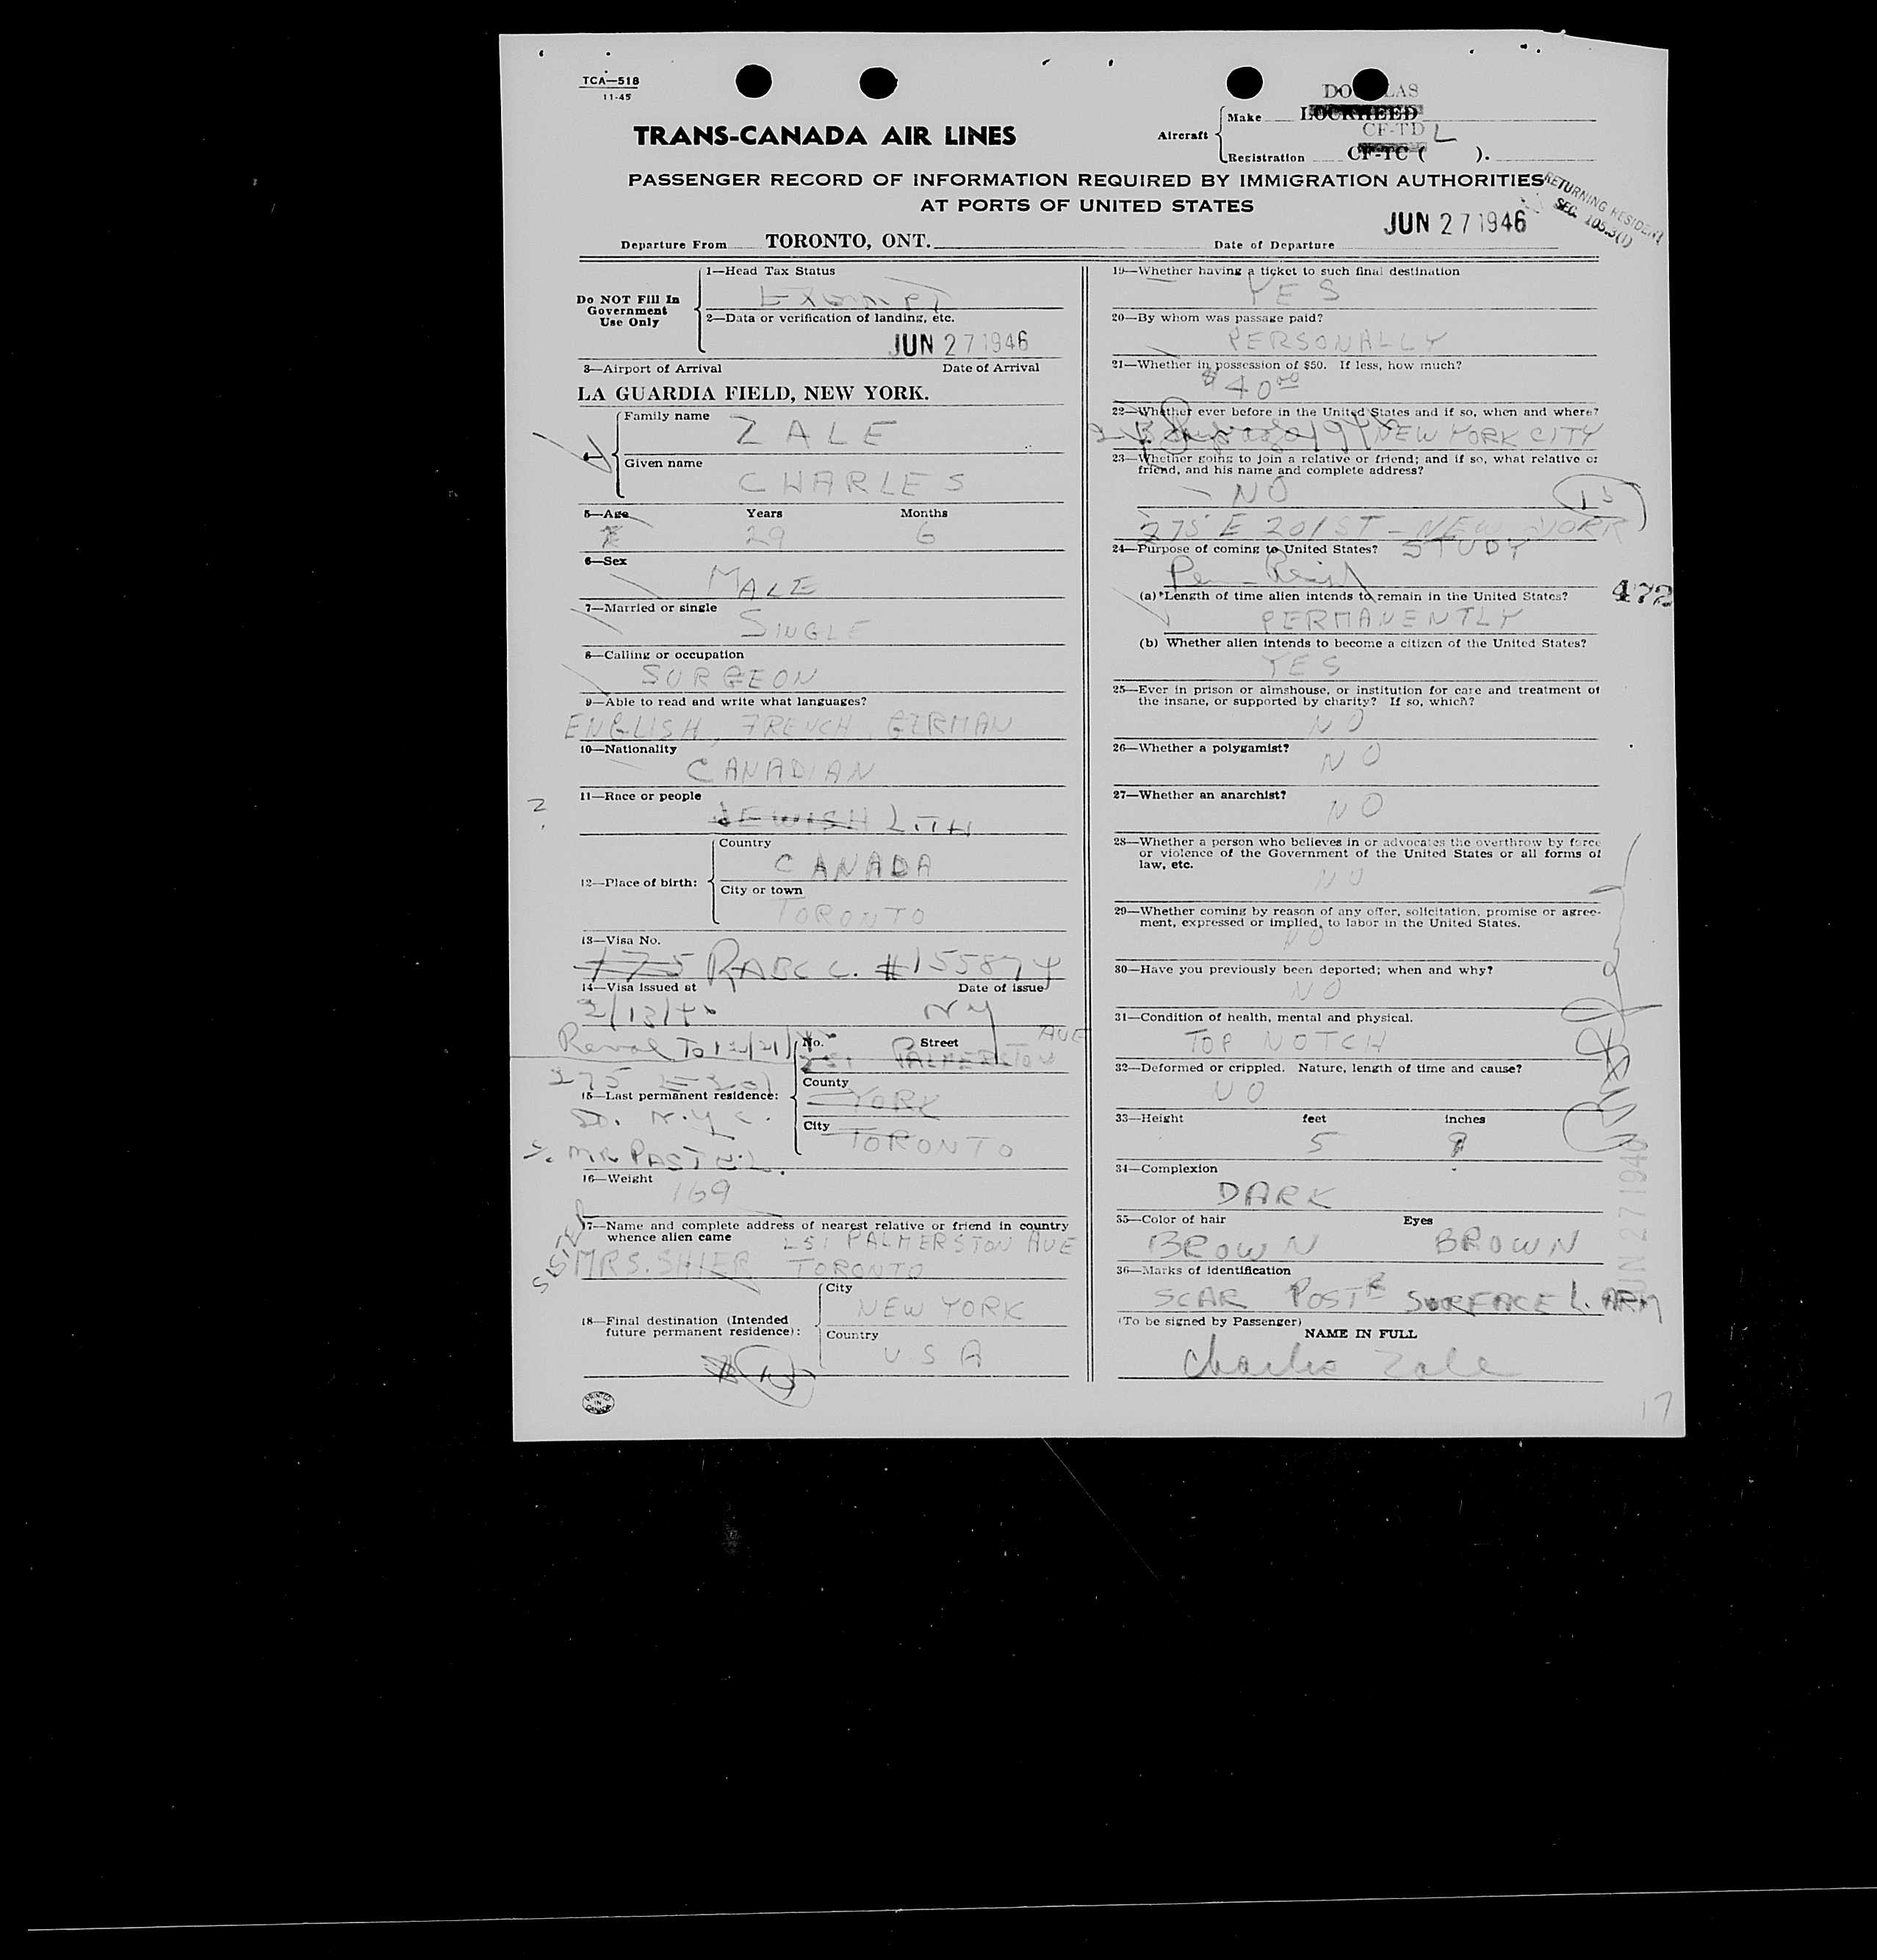 TCA—518
11-45
DOUGLAS
Aircraft Make LOCKHEED
CF-TD L
Registration CF-TC ( ).
TRANS-CANADA AIR LINES
PASSENGER RECORD OF INFORMATION REQUIRED BY IMMIGRATION AUTHORITIES
AT PORTS OF UNITED STATES
RETURNING RESIDENT
SEC. 105.3(1)
Departure From TORONTO, ONT. Date of Departure JUN 27 1946
Do NOT Fill In
Government
Use Only
1—Head Tax Status
Exempt
2—Data or verification of landing, etc.
JUN 27 1946
3—Airport of Arrival Date of Arrival
LA GUARDIA FIELD, NEW YORK.
Family name
ZALE
Given name
CHARLES
5—Age Years Months
29 6
6—Sex
MALE
7—Married or single
SINGLE
8—Calling or occupation
SURGEON
9—Able to read and write what languages?
ENGLISH, FRENCH, GERMAN
10—Nationality
CANADIAN
11—Race or people
JEWISH LITH
12—Place of birth:
Country
CANADA
City or town
TORONTO
13—Visa No.
175 RABC C. #155874
14—Visa issued at Date of issue
2/13/ NY
No. Street
PALMERSTON AVE
275 E 201
15—Last permanent residence:
St. N.Y.C.
County
YORK
City
TORONTO
16—Weight
169
17—Name and complete address of nearest relative or friend in country
whence alien came 251 PALMERSTON AVE
SISTER MRS. SHIER TORONTO
18—Final destination (Intended
future permanent residence):
City
NEW YORK
Country
USA
PRINTED IN CANADA
19—Whether having a ticket to such final destination
YES
20—By whom was passage paid?
PERSONALLY
21—Whether in possession of $50. If less, how much?
$40.00
22—Whether ever before in the United States and if so, when and where?
NEW YORK CITY
23—Whether going to join a relative or friend; and if so, what relative or
friend, and his name and complete address?
NO
275 E 201 ST - NEW YORK
24—Purpose of coming to United States? STUDY
(a)*Length of time alien intends to remain in the United States?
472
PERMANENTLY
(b) Whether alien intends to become a citizen of the United States?
YES
25—Ever in prison or almshouse, or institution for care and treatment of
the insane, or supported by charity? If so, which?
NO
26—Whether a polygamist?
NO
27—Whether an anarchist?
NO
28—Whether a person who believes in or advocates the overthrow by force
or violence of the Government of the United States or all forms of
law, etc.
NO
29—Whether coming by reason of any offer, solicitation, promise or agree-
ment, expressed or implied, to labor in the United States.
NO
30—Have you previously been deported; when and why?
NO
31—Condition of health, mental and physical.
TOP NOTCH
32—Deformed or crippled. Nature, length of time and cause?
NO
33—Height feet inches
5 9
34—Complexion
DARK
35—Color of hair Eyes
BROWN BROWN
36—Marks of identification
SCAR POSTR SURFACE L. ARM
JUN 27 1946
(To be signed by Passenger)
NAME IN FULL
Charles Zale
17